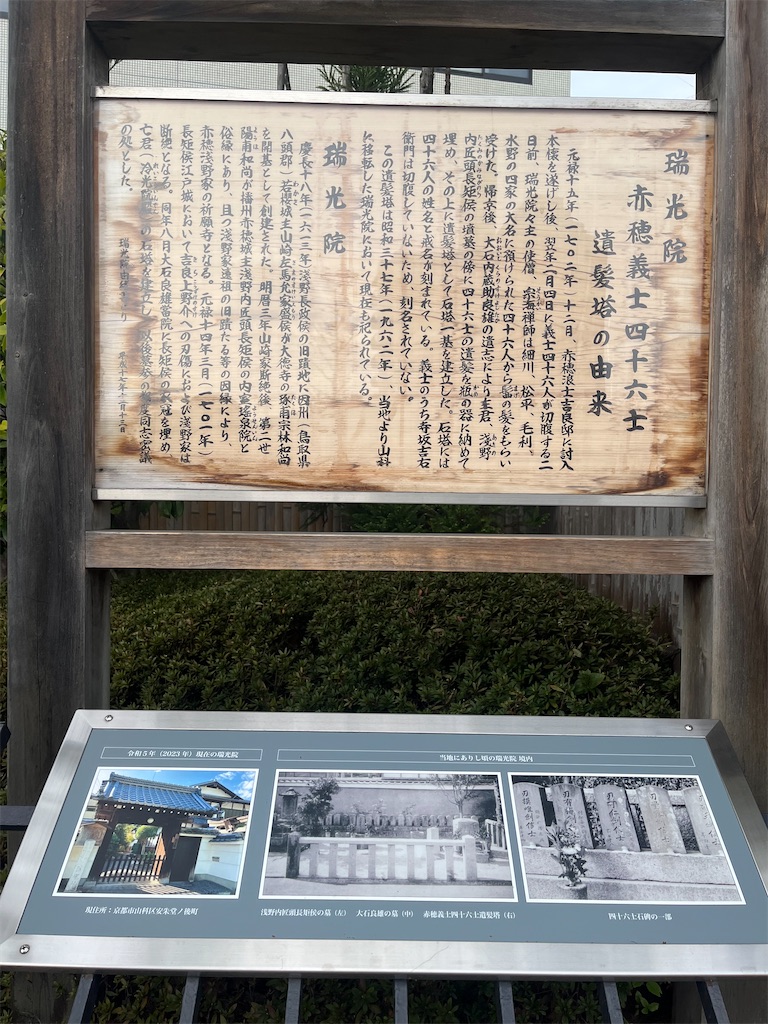 瑞光院
赤穂義士四十六士
遺髪塔の由来
元禄十五年(一七〇二年)十二月、赤穂浪士吉良邸に討入
本懐を遂げし後、翌年二月四日に義士四十六人が切腹する二
日前、瑞光院々主の使僧、宗海禅師は細川、松平、毛利、
水野の四家の大名に預けられた四十六人から髻の髪をもらい
受けた。帰京後、大石内蔵助良雄の遺志により主君、浅野
内匠頭長矩侯の墳墓の傍に四十六士の遺髪を瓶の器に納めて
埋め、その上に遺髪塔として石塔一基を建立した。石塔には
四十六人の姓名と戒名が刻まれている。義士のうち寺坂吉右
衛門は切腹していないため、刻名されていない。
この遺髪塔は昭和三十七年(一九六二年)、当地より山科
に移転した瑞光院において現在も祀られている。
瑞光院
慶長十八年(一六一三年)浅野長政侯の旧蹟地に因州(鳥取県
八頭郡)若櫻城主山崎左馬允家盛侯が大徳寺の琢甫宗林和尚
を開基として創建された。明暦三年山崎家断絶後、第二世
陽甫和尚が播州赤穂城主浅野内匠頭長矩侯の内室瑤泉院と
俗縁にあり、且つ浅野家遠祖の旧蹟たる等の因縁により、
赤穂浅野家の祈願寺となる。元禄十四年三月(一七〇一年)
長矩侯江戸城において吉良上野介への刃傷におよび浅野家は
断絶となる。同年八月大石良雄當院に長矩侯の衣冠を埋め
亡君(冷光院殿)の石塔を建立し、以後墓参の都度同志密議
の処とした。
瑞光院由緒より 平成十七年十二月十三日
令和5年(2023年)現在の瑞光院
当地にありし頃の瑞光院 境内
現住所:京都市山科区安朱堂ノ後町
浅野内匠頭長矩侯の墓(左) 大石良雄の墓(中) 赤穂義士四十六士遺髪塔(右)
四十六士石碑の一部